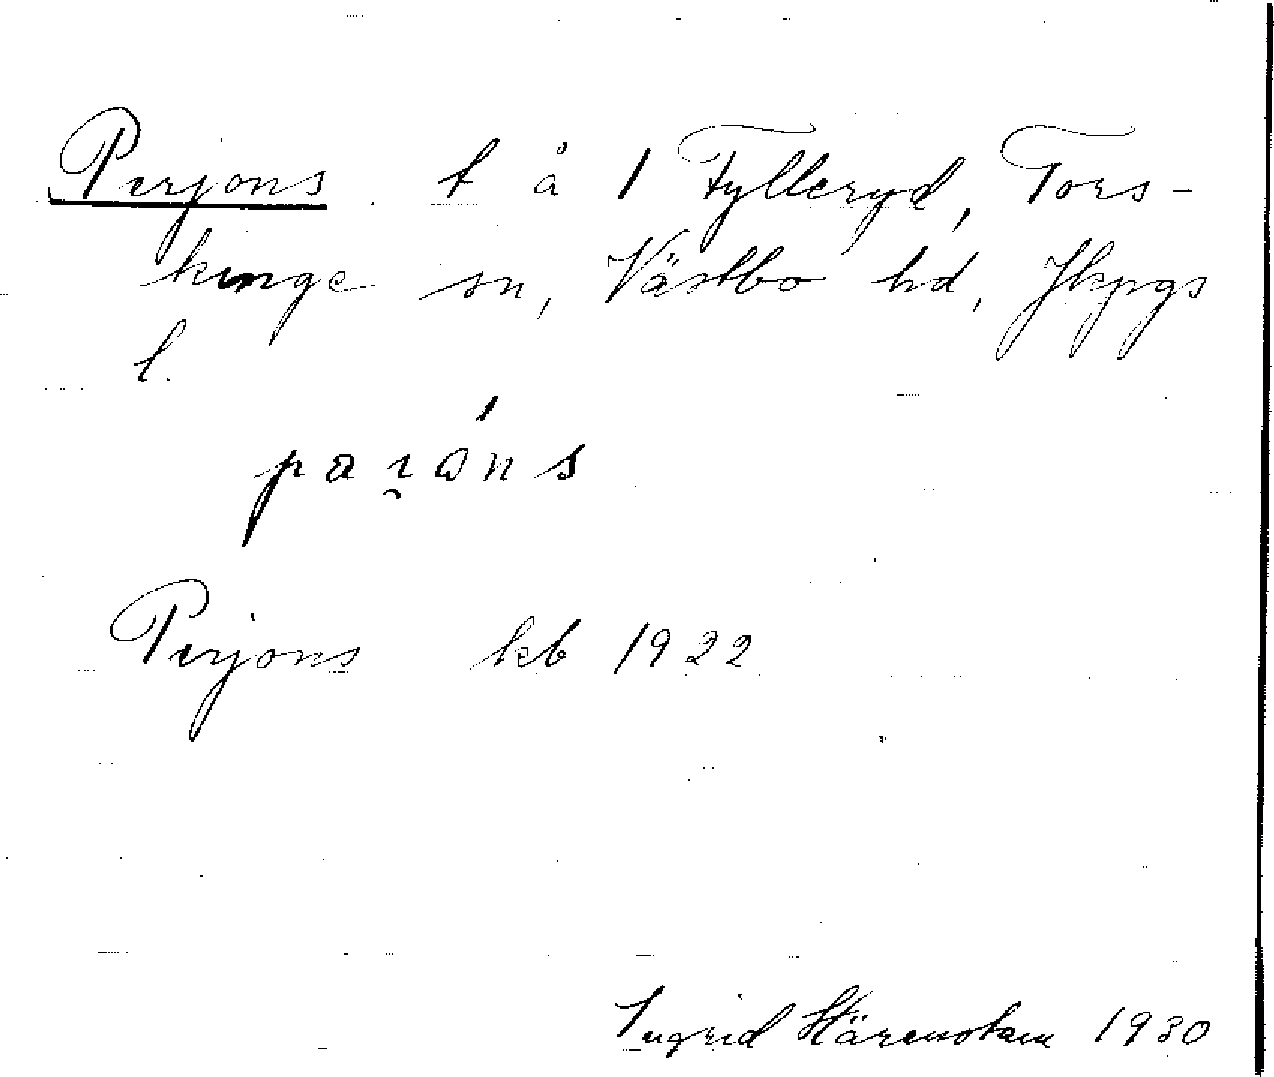 Perjons t å 1 Fylleryd, Tors-
kinge sn, Västbo hd, Jkpgs
l.
Perjons kb 1922
Ingrid 1930